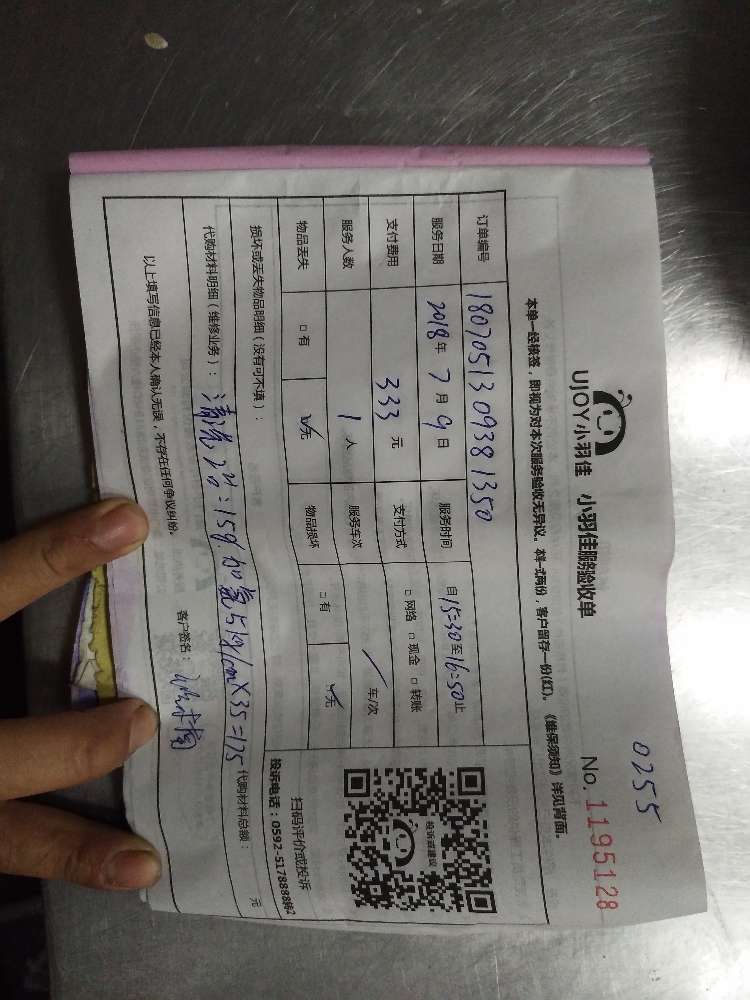 0255
UJOY小羽佳 小羽佳服务验收单 No. 1195128
本单一经核签，即视为对本次服务验收无异议。本单一式两份，客户留存一份(红)。《维保须知》详见背面。
订单编号 1807051309381350
服务日期 2018年 7月 9日 服务时间 自15:30至16:50止
支付费用 333 元 支付方式 □网络 □现金 □转账
服务人数 1 人 服务车次 / 车/次
物品丢失 □有 ☑无 物品损坏 □有 ☑无
损坏或丢失物品明细（没有可不填）：
代购材料明细（维修业务）： 清洗 加氟 X35=175 代购材料总额： 元
以上填写信息已经本人确认无误，不存在任何争议纠纷。 客户签名：
投诉或建议
扫码评价或投诉
投诉电话：0592-5178888转2